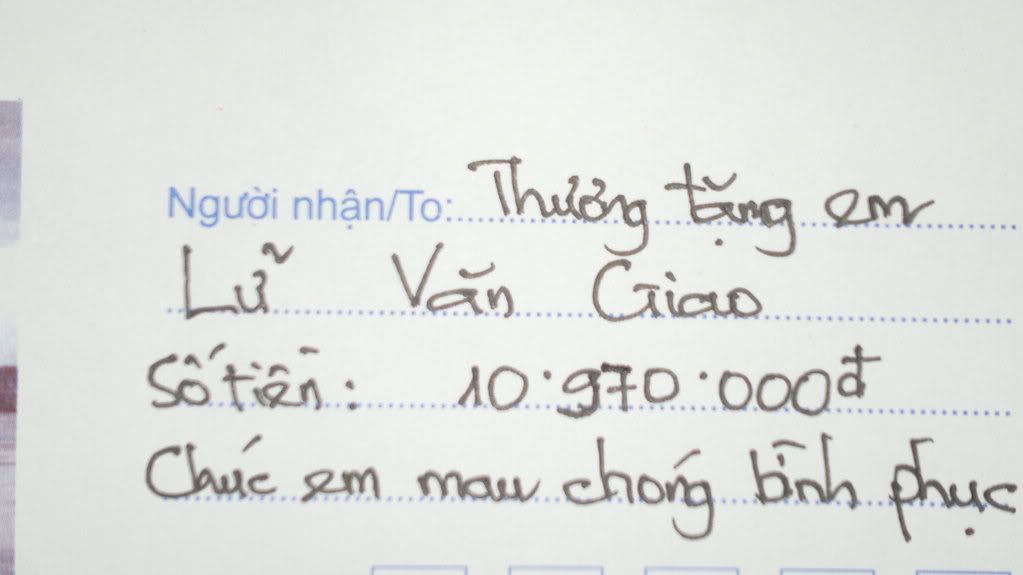 Người nhận/To: Thương tặng em
Lữ Văn Giao
Số tiền: 10.970.000đ
Chúc em mau chóng bình phục